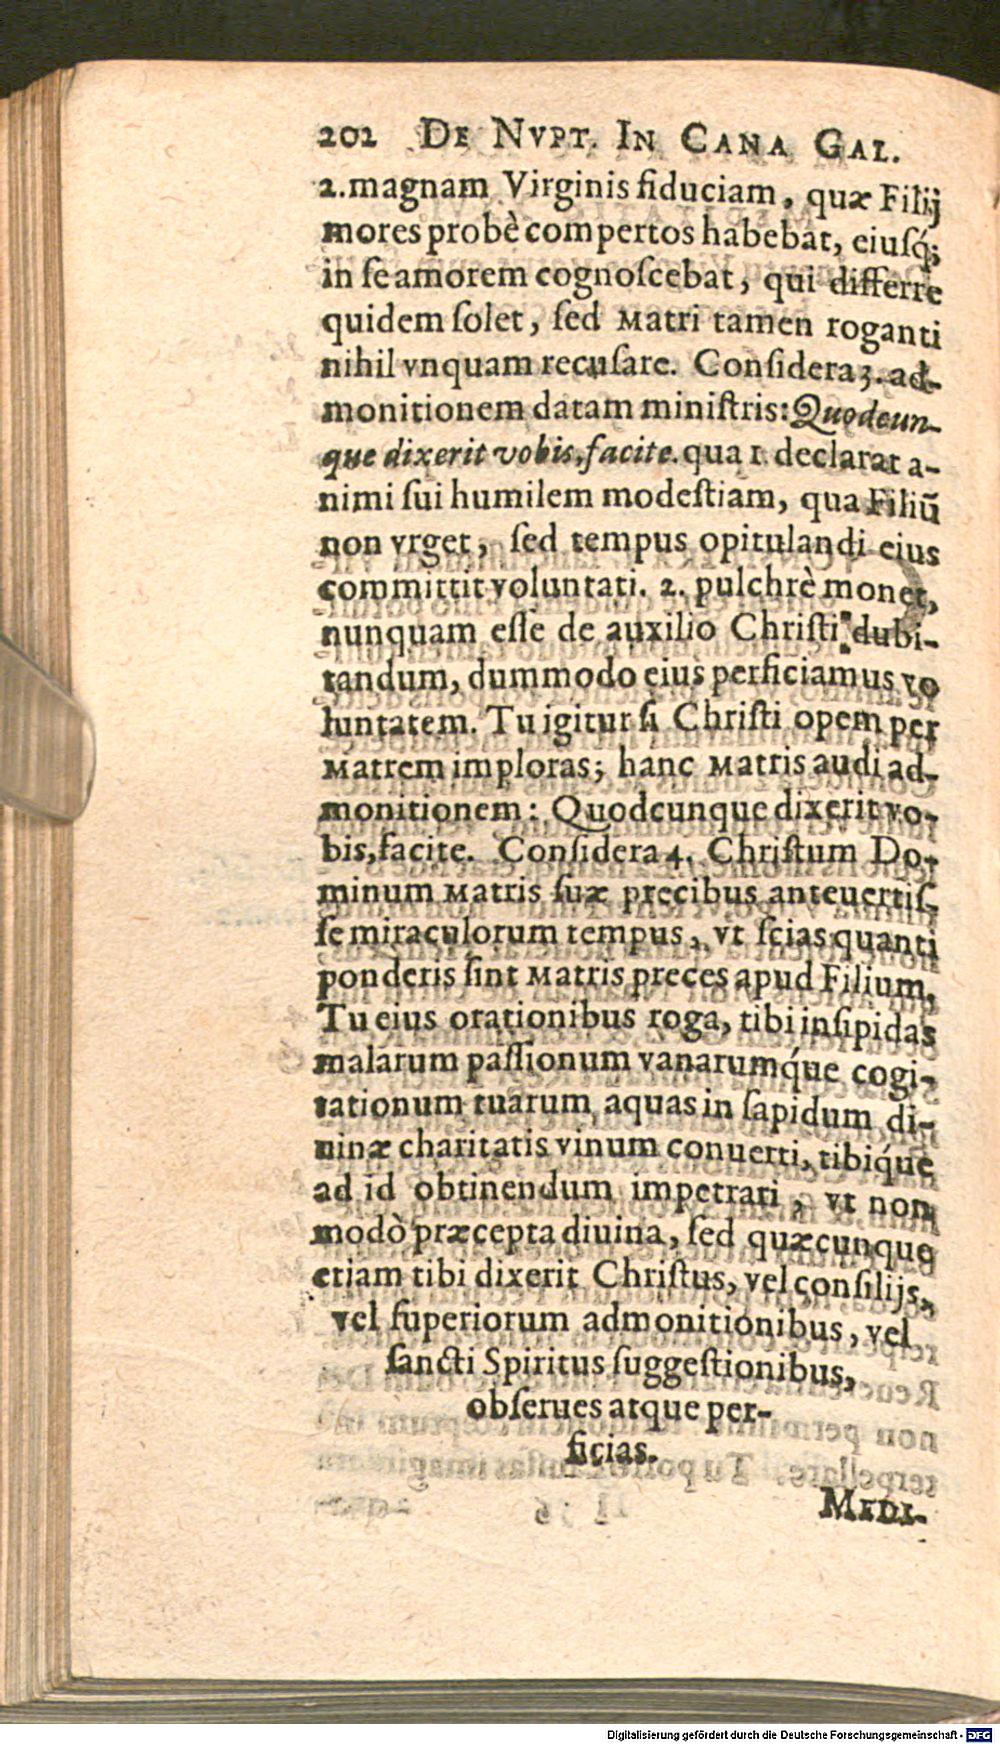 202 DE NVPT. IN CANA GAL.
2. magnam Virginis fiduciam, quæ Filij
mores probè compertos habebat, eiusq́;
in se amorem cognoscebat, qui differre
quidem solet, sed Matri tamen roganti
nihil vnquam recusare. Considera 3. ad-
monitionem datam ministris: Quodcun-
que dixerit vobis, facite. qua 1. declarat a-
nimi sui humilem modestiam, qua Filiū
non vrget, sed tempus opitulandi eius
committit voluntati. 2. pulchrè monet,
nunquam esse de auxilio Christi dubi-
tandum, dummodo eius perficiamus vo
luntatem. Tu igitur si Christi opem per
Matrem imploras; hanc Matris audi ad-
monitionem: Quodcunque dixerit vo-
bis, facite. Considera 4. Christum Do-
minum Matris suæ precibus anteuertis-
se miraculorum tempus, vt scias quanti
ponderis sint Matris preces apud Filium,
Tu eius orationibus roga, tibi insipidas
malarum passionum vanarumq́ue cogi-
tationum tuarum aquas in sapidum di-
uinæ charitatis vinum conuerti, tibiq́ue
ad id obtinendum impetrari, vt non
modò præcepta diuina, sed quæcunque
etiam tibi dixerit Christus, vel consilijs,
vel superiorum admonitionibus, vel
sancti Spiritus suggestionibus,
obserues atque per-
ficias.
MEDI-
Digitalisierung gefördert durch die Deutsche Forschungsgemeinschaft - DFG